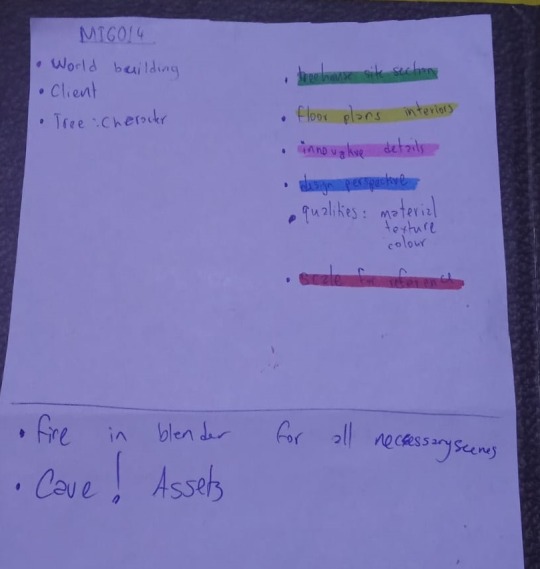 MIG014
• World building
• Client
• Tree : Character
• treehouse site section
• floor plans interiors
• innovative details
• design perspective
• qualities : material
texture
colour
• scale for reference
• Fire in blender for all necessary scenes
• Cave ! Assets